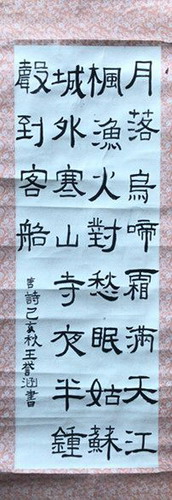 月落烏啼霜滿天江
楓漁火對愁眠姑蘇
城外寒山寺夜半鍾
聲到客船
唐詩己亥秋王譽涵書